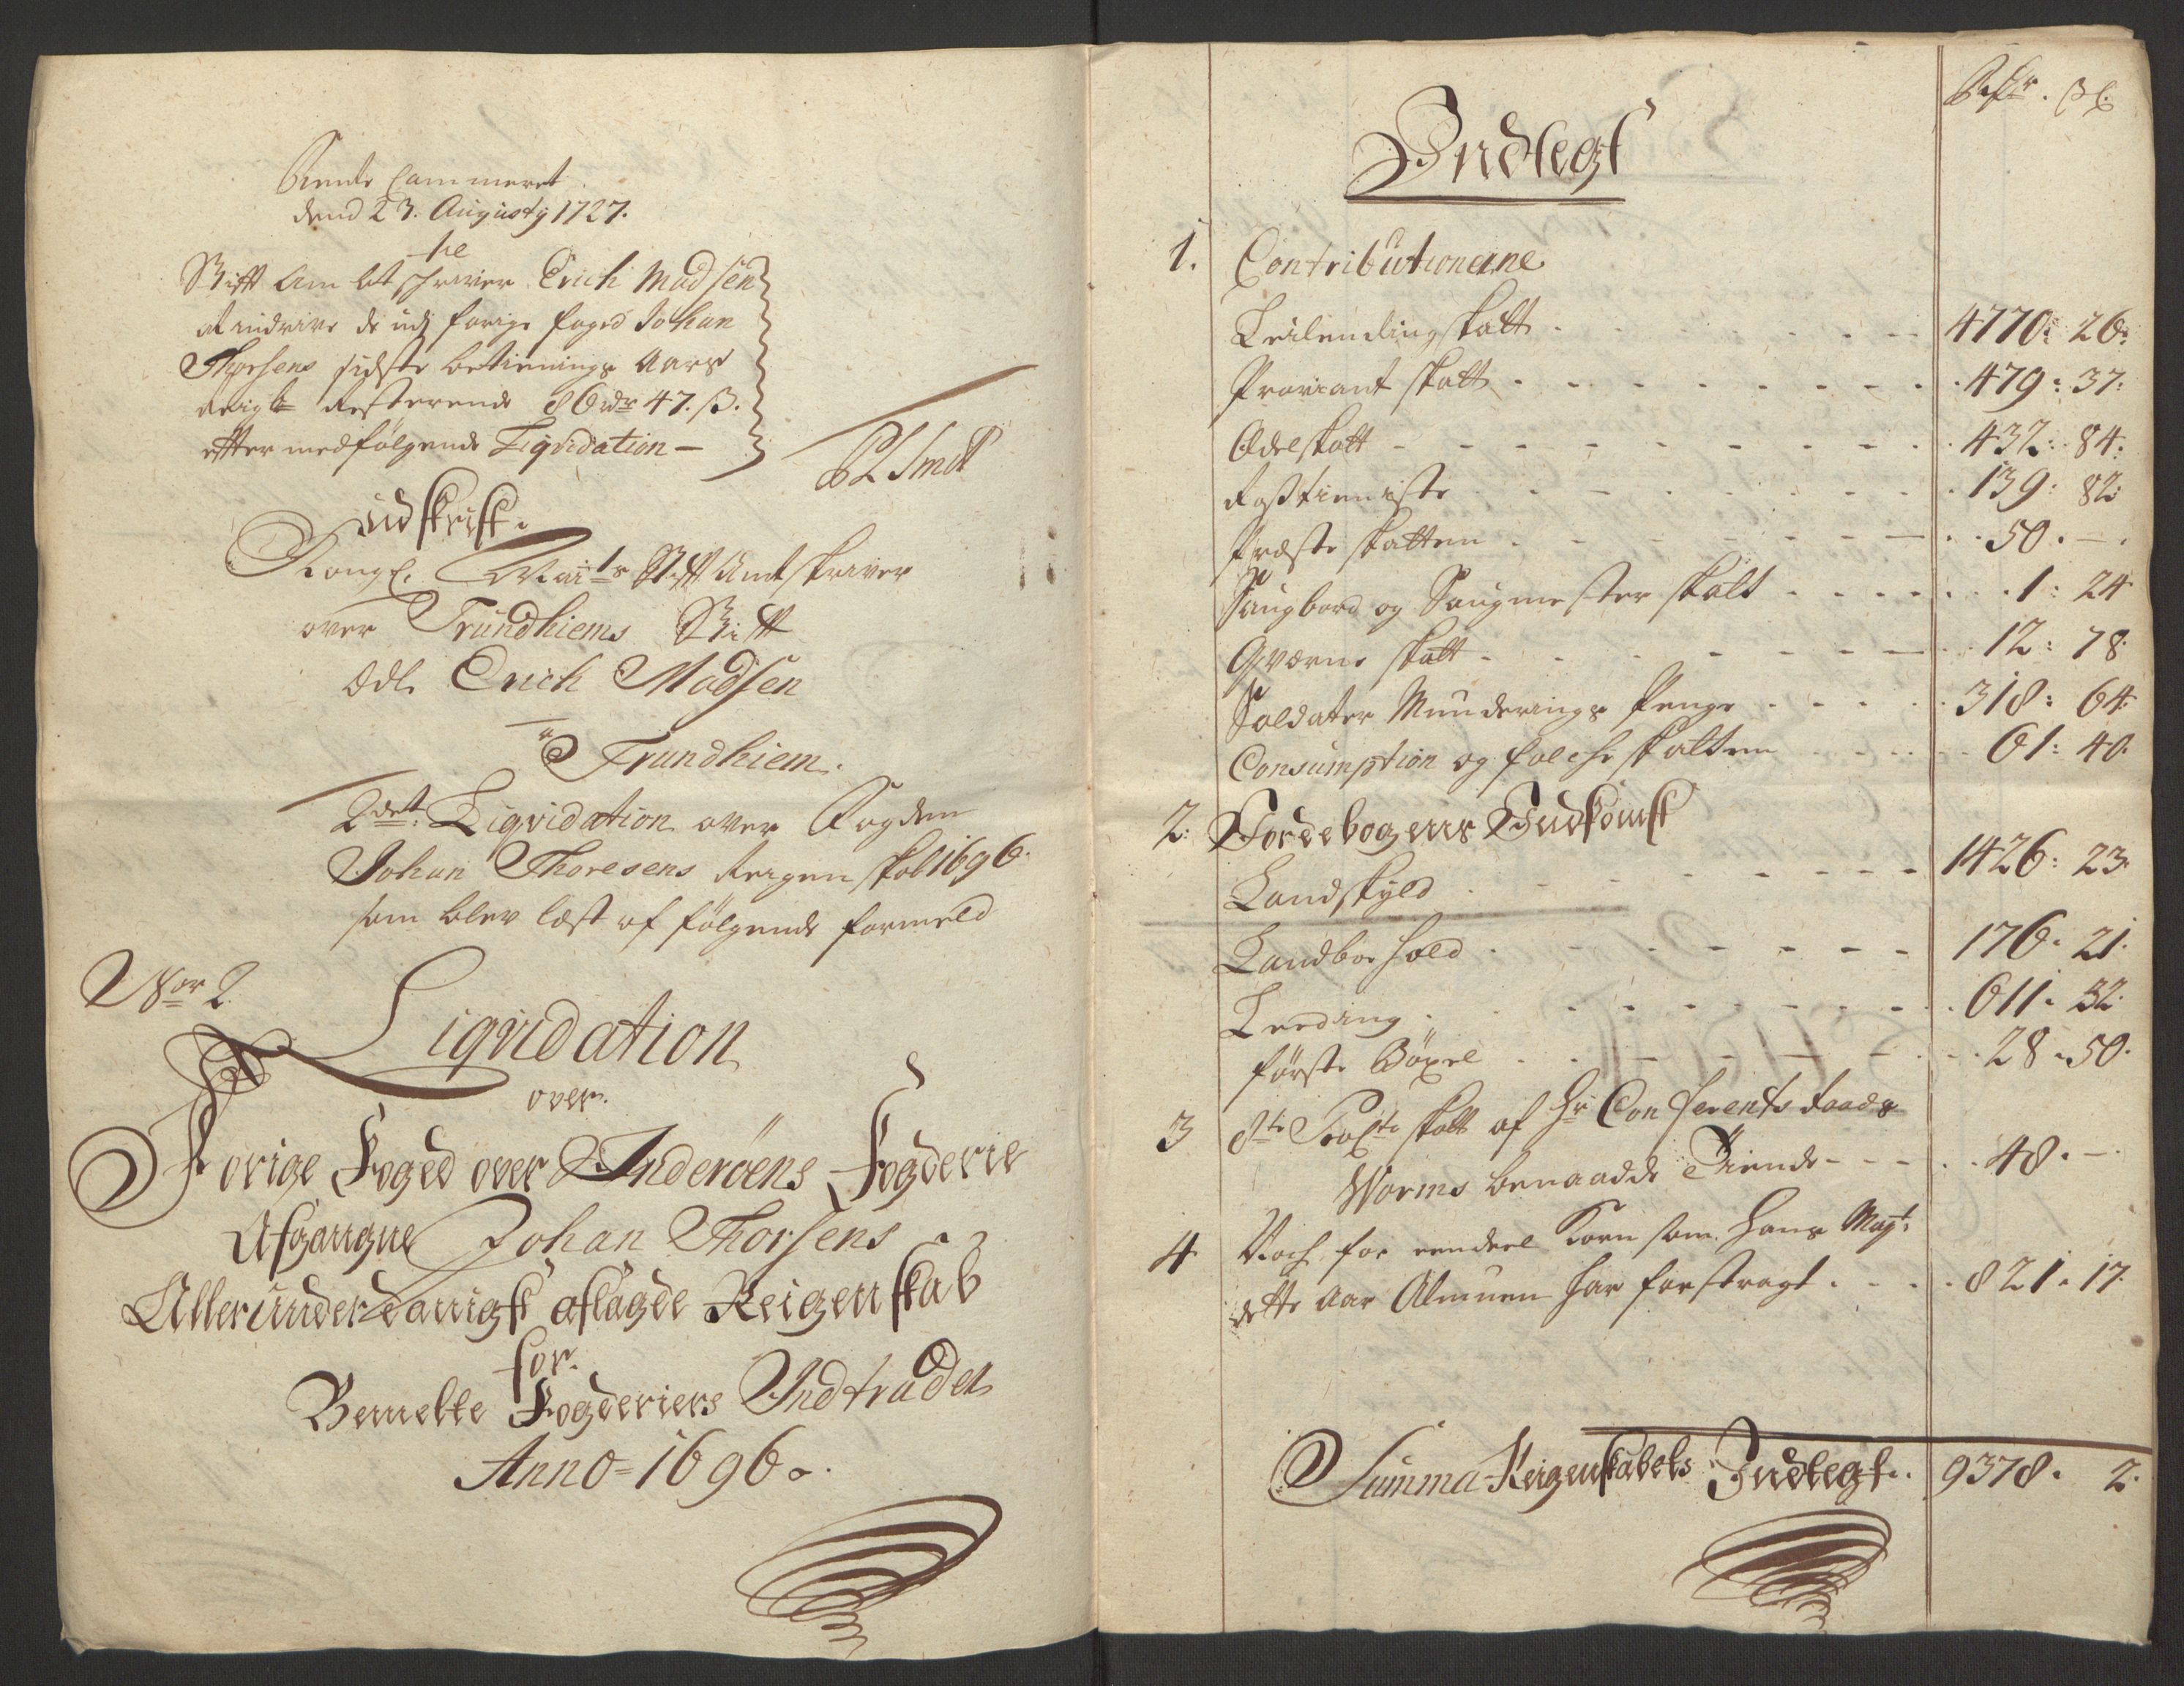 Rente Cammeret
dend 23. Augusty 1727.
Stifft Am bt schriver Erich Madsen
at inddrive de udj forige foged Johan
Thorsens sidste betienings Aars
Resterende 86 rdr 47. β.
effter medfølgende Liqvidation –
Smdt
udskrift.
Kongl. Mai:ts Stifft Amtskriver
over Trundhiems Stifft
Edl. Erich Madsen
a Trundhiem.
2det Liqvidation over Fogden
Johan Thoresens Reigenskab 1696.
som blev læst af følgende formeld
Nor 2.
Liqvidation
over.
Forige Foged over Inderöens Fogderie
Afgangne Johan Thorsens
Allerunderdanigst aflagde Reigenskab
for.
Bemelte Fogderiers Indtrader
Anno 1696.
Rdr. β.
Indtegt
1. Contributionerne
Leilendingskatt 4770: 26:
Proviant skatt 479: 37:
Odelskatt 432: 84:
Rostieniste 139: 82:
Præste skatten 50. –.
Saugbord og Saugmester skatt 1: 24
Qværne skatt 12: 78.
Soldater Munderings Penge 318: 64:
Consumption og folche skatten 61: 40.
2: Jordebogens Indkomst
Landskyld 1426: 23:
Landboe hold 176. 21.
Leeding 611. 32.
förste Böxel 28. 50.
3 skatt af Hr Conferents Raads
Worms benaadde Tiende 48. –.
4 Noch for eendeel Korn som Hans Mayt:
dette Aar Almuen har forstragt 821. 17.
Summa Reigenskabets Indtegt. 9378. 2.